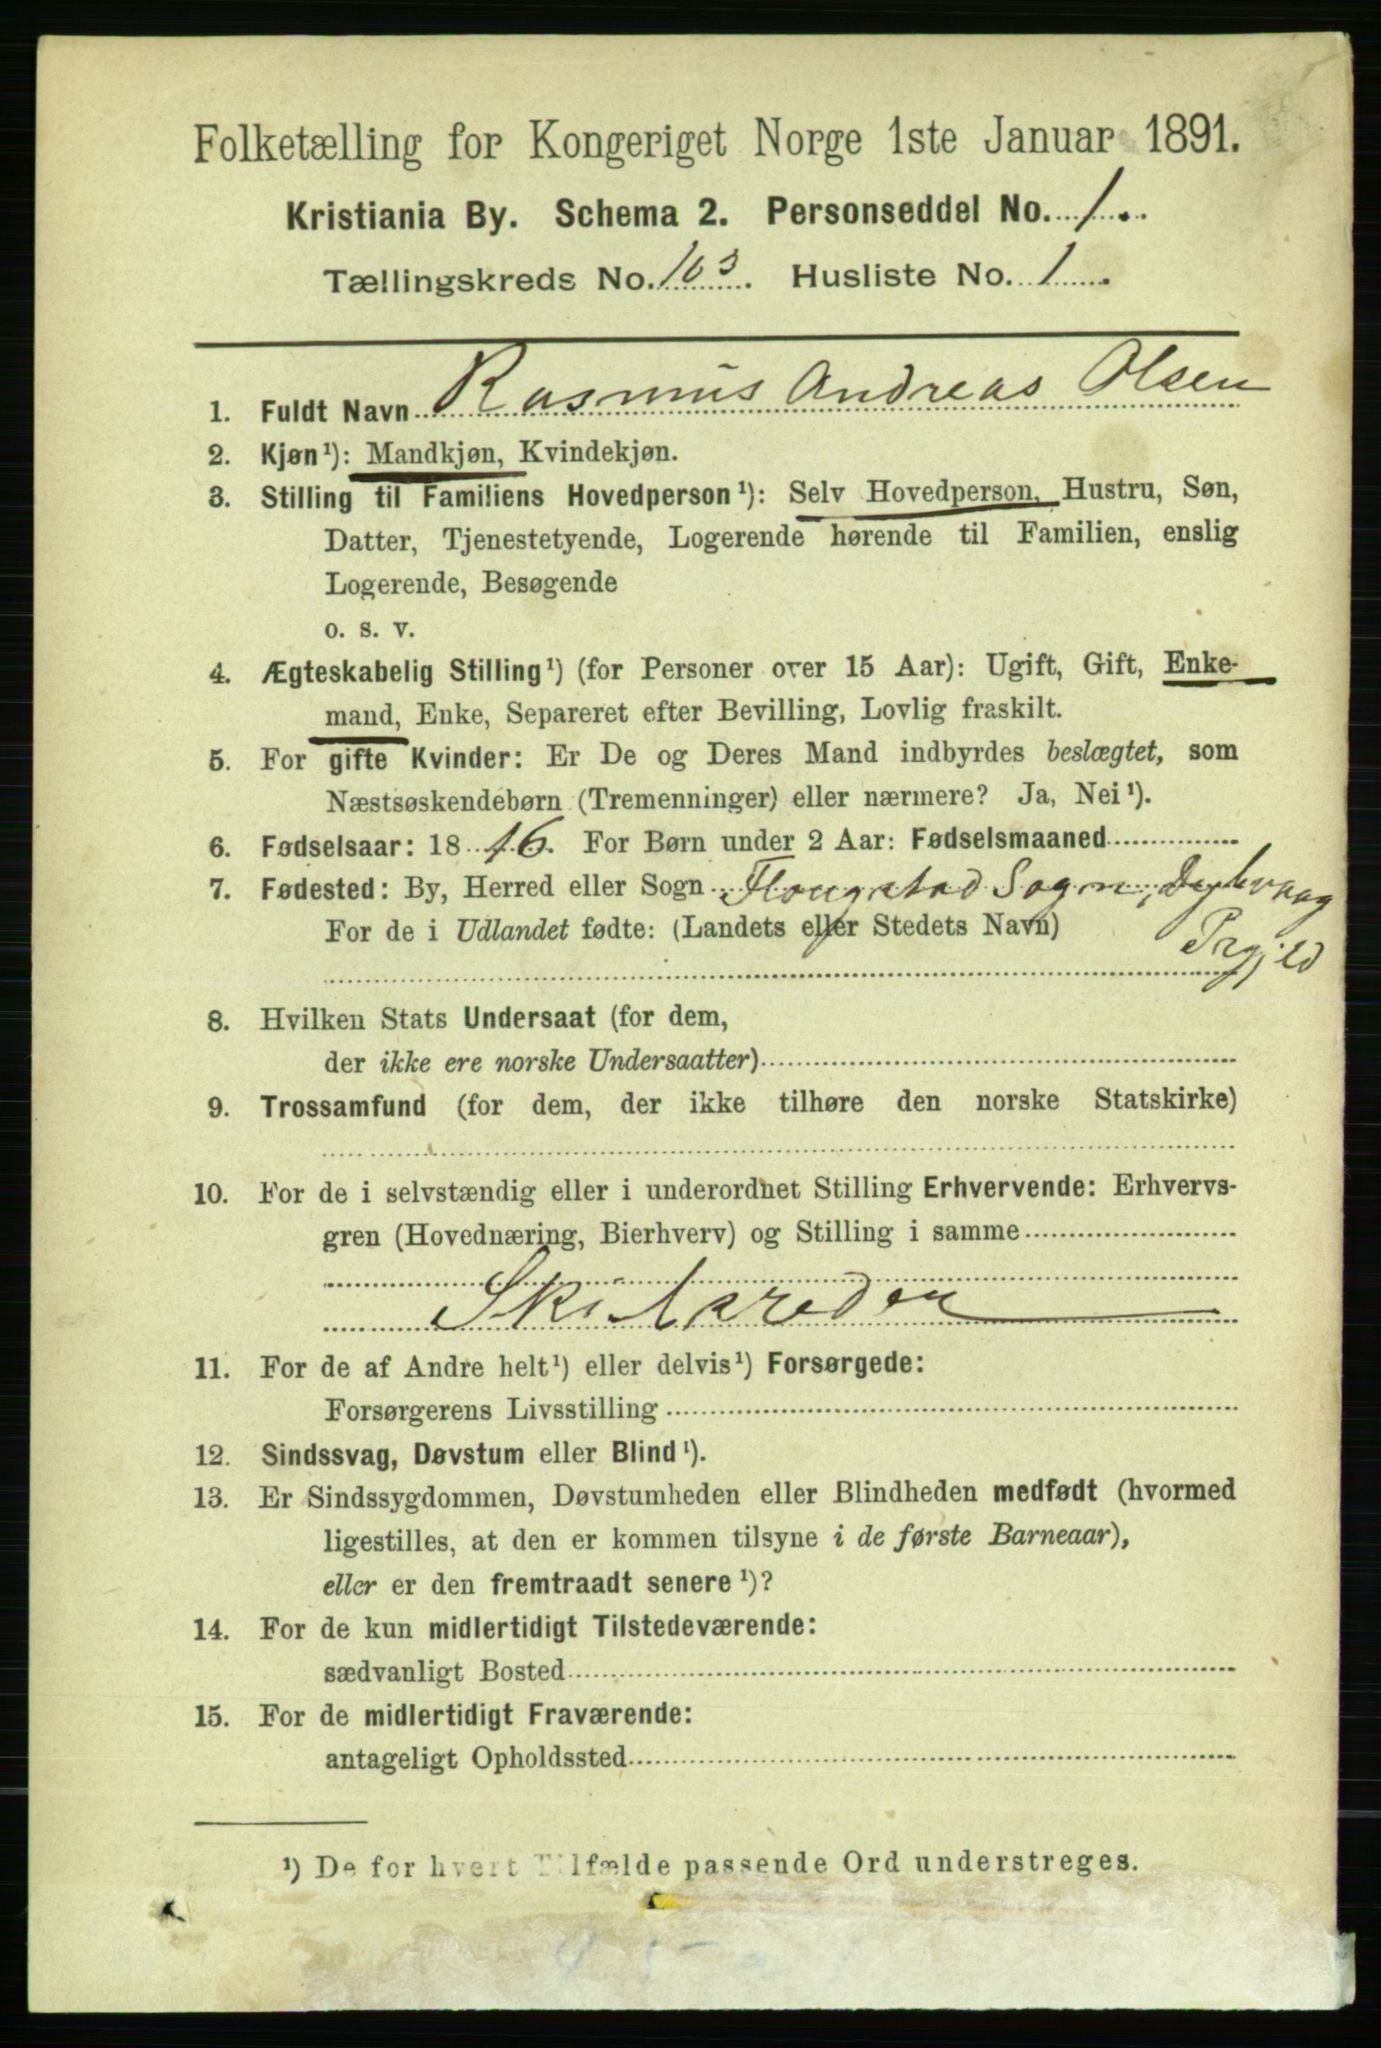 Folketælling for Kongeriget Norge 1ste Januar 1891.
Kristiania By. Schema 2. Personseddel No. 1.
Tællingskreds No. 103. Husliste No. 1.
1. Fuldt Navn Rasmus Andreas Olsen
2. Kjøn¹): Mandkjøn, Kvindekjøn.
3. Stilling til Familiens Hovedperson¹): Selv Hovedperson, Hustru, Søn,
Datter, Tjenestetyende, Logerende hørende til Familien, enslig
Logerende, Besøgende
o. s. v.
4. Ægteskabelig Stilling¹) (for Personer over 15 Aar): Ugift, Gift, Enke-
mand, Enke, Separeret efter Bevilling, Lovlig fraskilt.
5. For gifte Kvinder: Er De og Deres Mand indbyrdes beslægtet, som
Næstsøskendebørn (Tremenninger) eller nærmere? Ja, Nei¹).
6. Fødselsaar: 1846. For Børn under 2 Aar: Fødselsmaaned
7. Fødested: By, Herred eller Sogn Flougstad Sogn, Dyhvaag
For de i Udlandet fødte: (Landets eller Stedets Navn) Prgjld
8. Hvilken Stats Undersaat (for dem,
der ikke ere norske Undersaatter)
9. Trossamfund (for dem, der ikke tilhøre den norske Statskirke)
10. For de i selvstændig eller i underordnet Stilling Erhvervende: Erhvervs-
gren (Hovednæring, Bierhverv) og Stilling i samme
Skibsreder
11. For de af Andre helt¹) eller delvis¹) Forsørgede:
Forsørgerens Livsstilling
12. Sindssvag, Døvstum eller Blind¹).
13. Er Sindssygdommen, Døvstumheden eller Blindheden medfødt (hvormed
ligestilles, at den er kommen tilsyne i de første Barneaar),
eller er den fremtraadt senere¹)?
14. For de kun midlertidigt Tilstedeværende:
sædvanligt Bosted
15. For de midlertidigt Fraværende:
antageligt Opholdssted
¹) De for hvert Tilfælde passende Ord understreges.